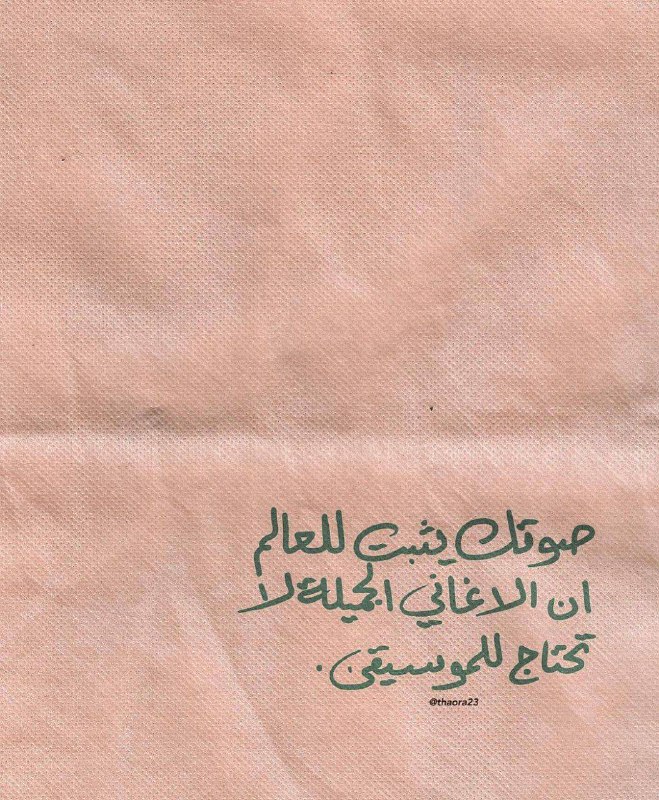 صوتك يثبت للعالم
ان الاغاني الجميلة لا
تحتاج للموسيقى.
@thaora23